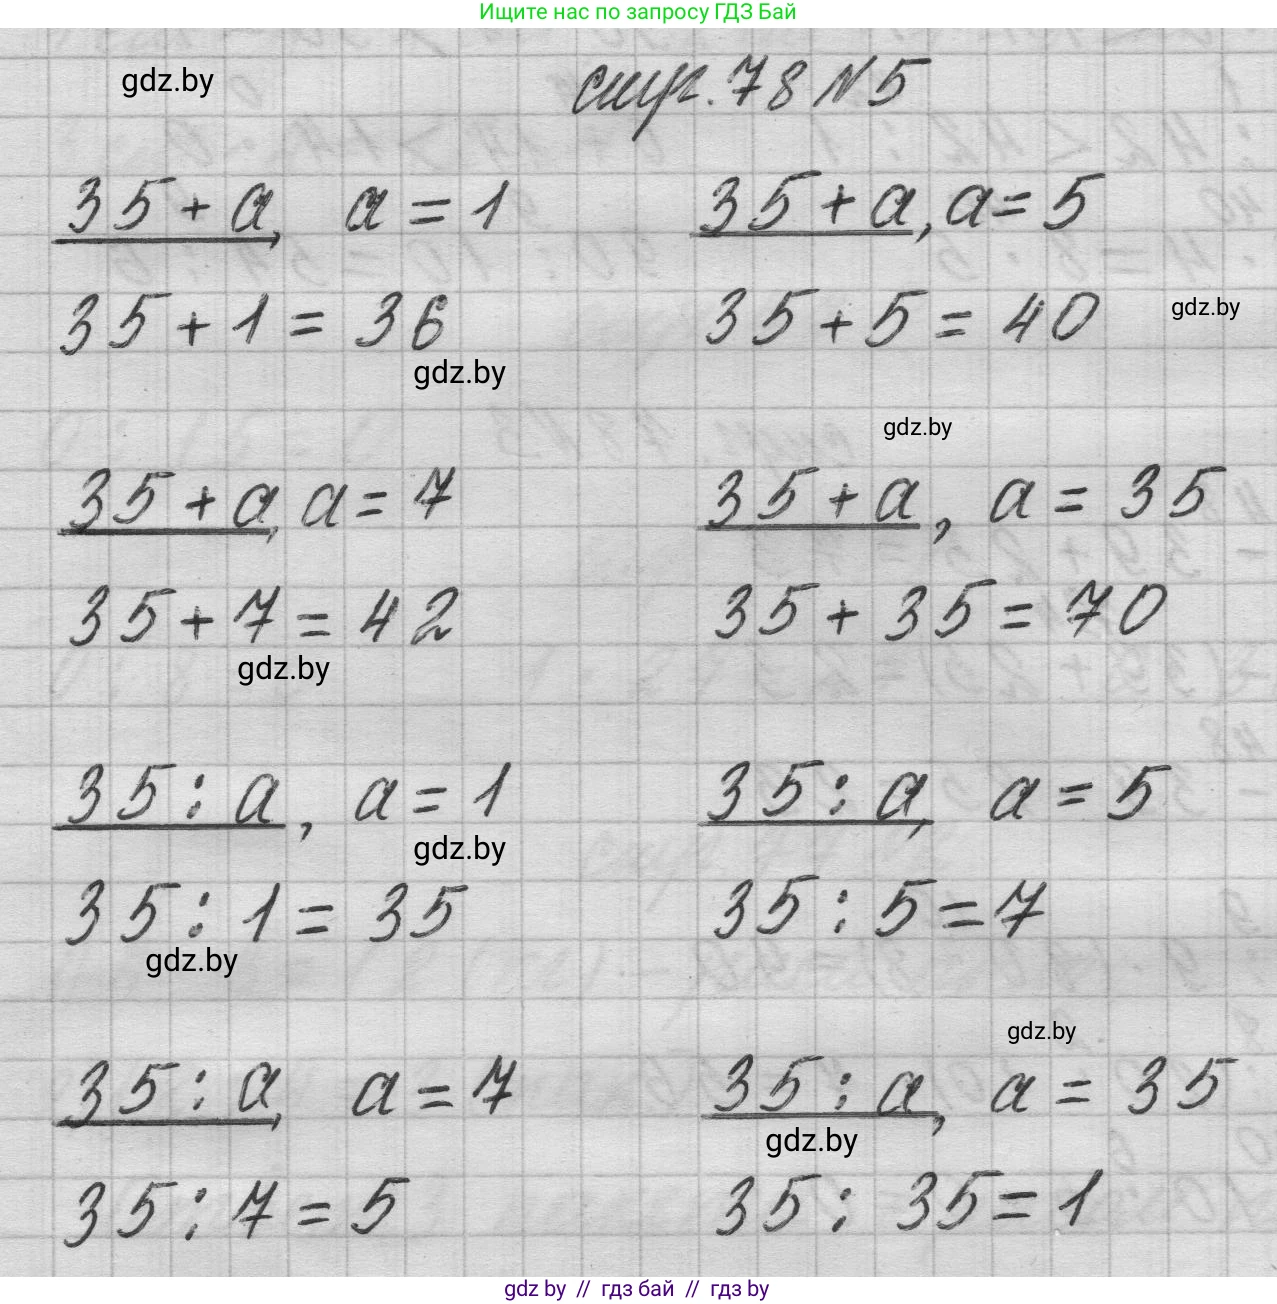 Ищите нас по запросу ГДЗ Бай
gdz.by
стр. 78 №5
35 + a, a = 1
35 + a, a = 5
35 + 1 = 36
35 + 5 = 40
gdz.by
gdz.by
gdz.by
35 + a, a = 7
35 + a, a = 35
35 + 7 = 42
35 + 35 = 70
gdz.by
35 : a, a = 1
35 : a, a = 5
gdz.by
35 : 1 = 35
35 : 5 = 7
gdz.by
gdz.by
35 : a, a = 7
35 : a, a = 35
gdz.by
35 : 7 = 5
35 : 35 = 1
gdz by // гдз бай // гдз by